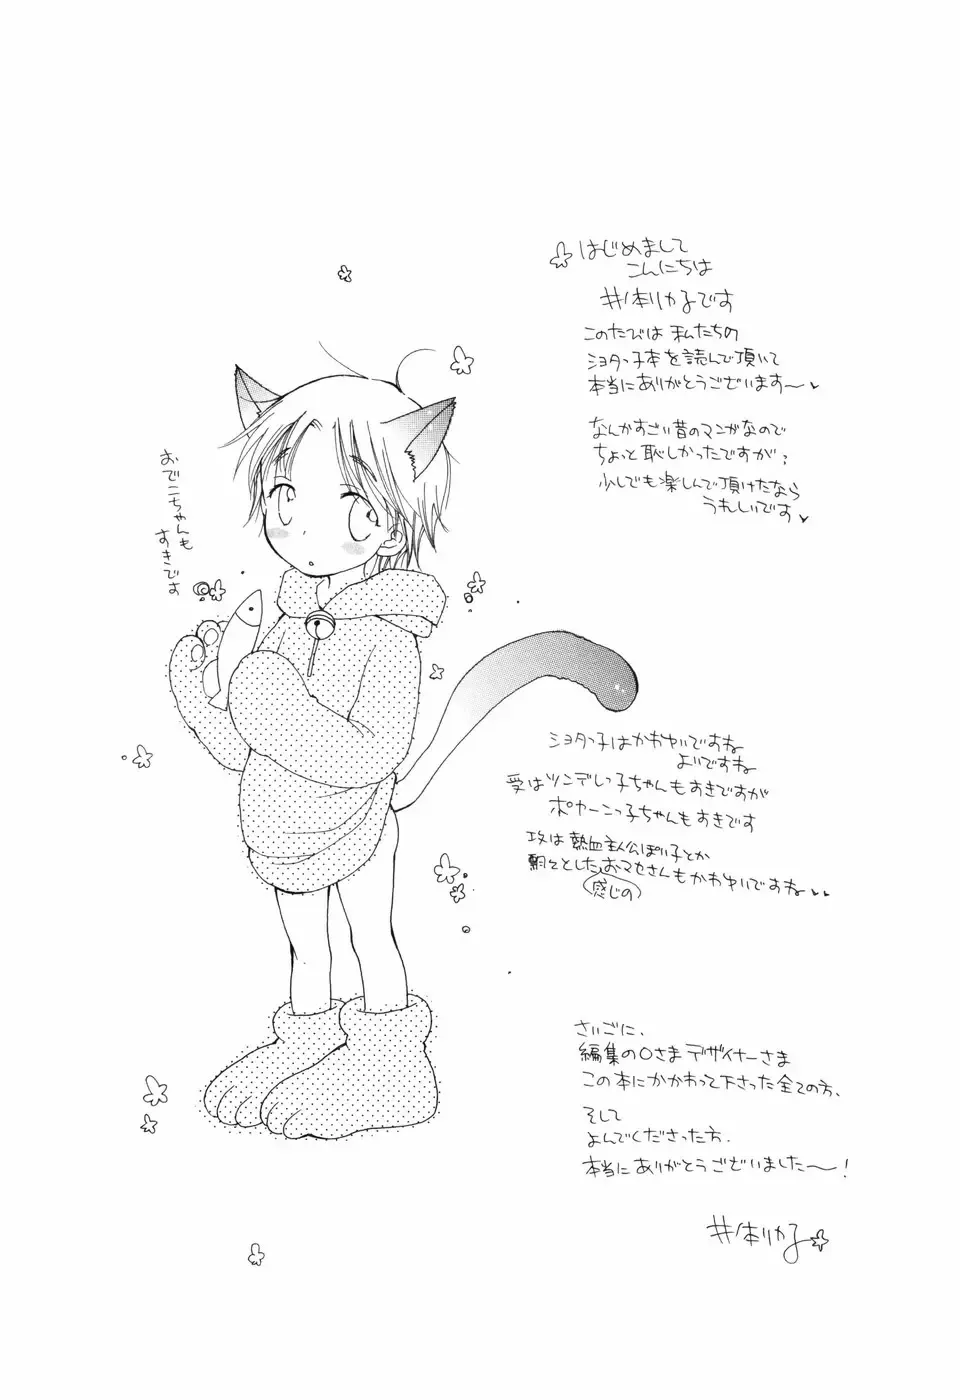 はじめまして
こんにちは
井本リカ子です
このたびは 私たちの
ショタっ子本を読んで頂いて
本当にありがとうございます〜
なんかすごい昔のマンガなので
ちょっと恥しかったですが、
少しでも楽しんで頂けたなら
うれしいです
おでこちゃんも
すきです
ショタっ子はかわゆいですね
よいですね
受はツンデレっ子ちゃんもすきですが
ポカーンっ子ちゃんもすきです
攻は熱血主人公ぽい子とか
とした感じのおマセさんもかわゆいですね
さいごに、
編集のOさまデザイナーさま
この本にかかわって下さった全ての方、
そして
よんでくださった方、
本当にありがとうございました〜!
井本リカ子